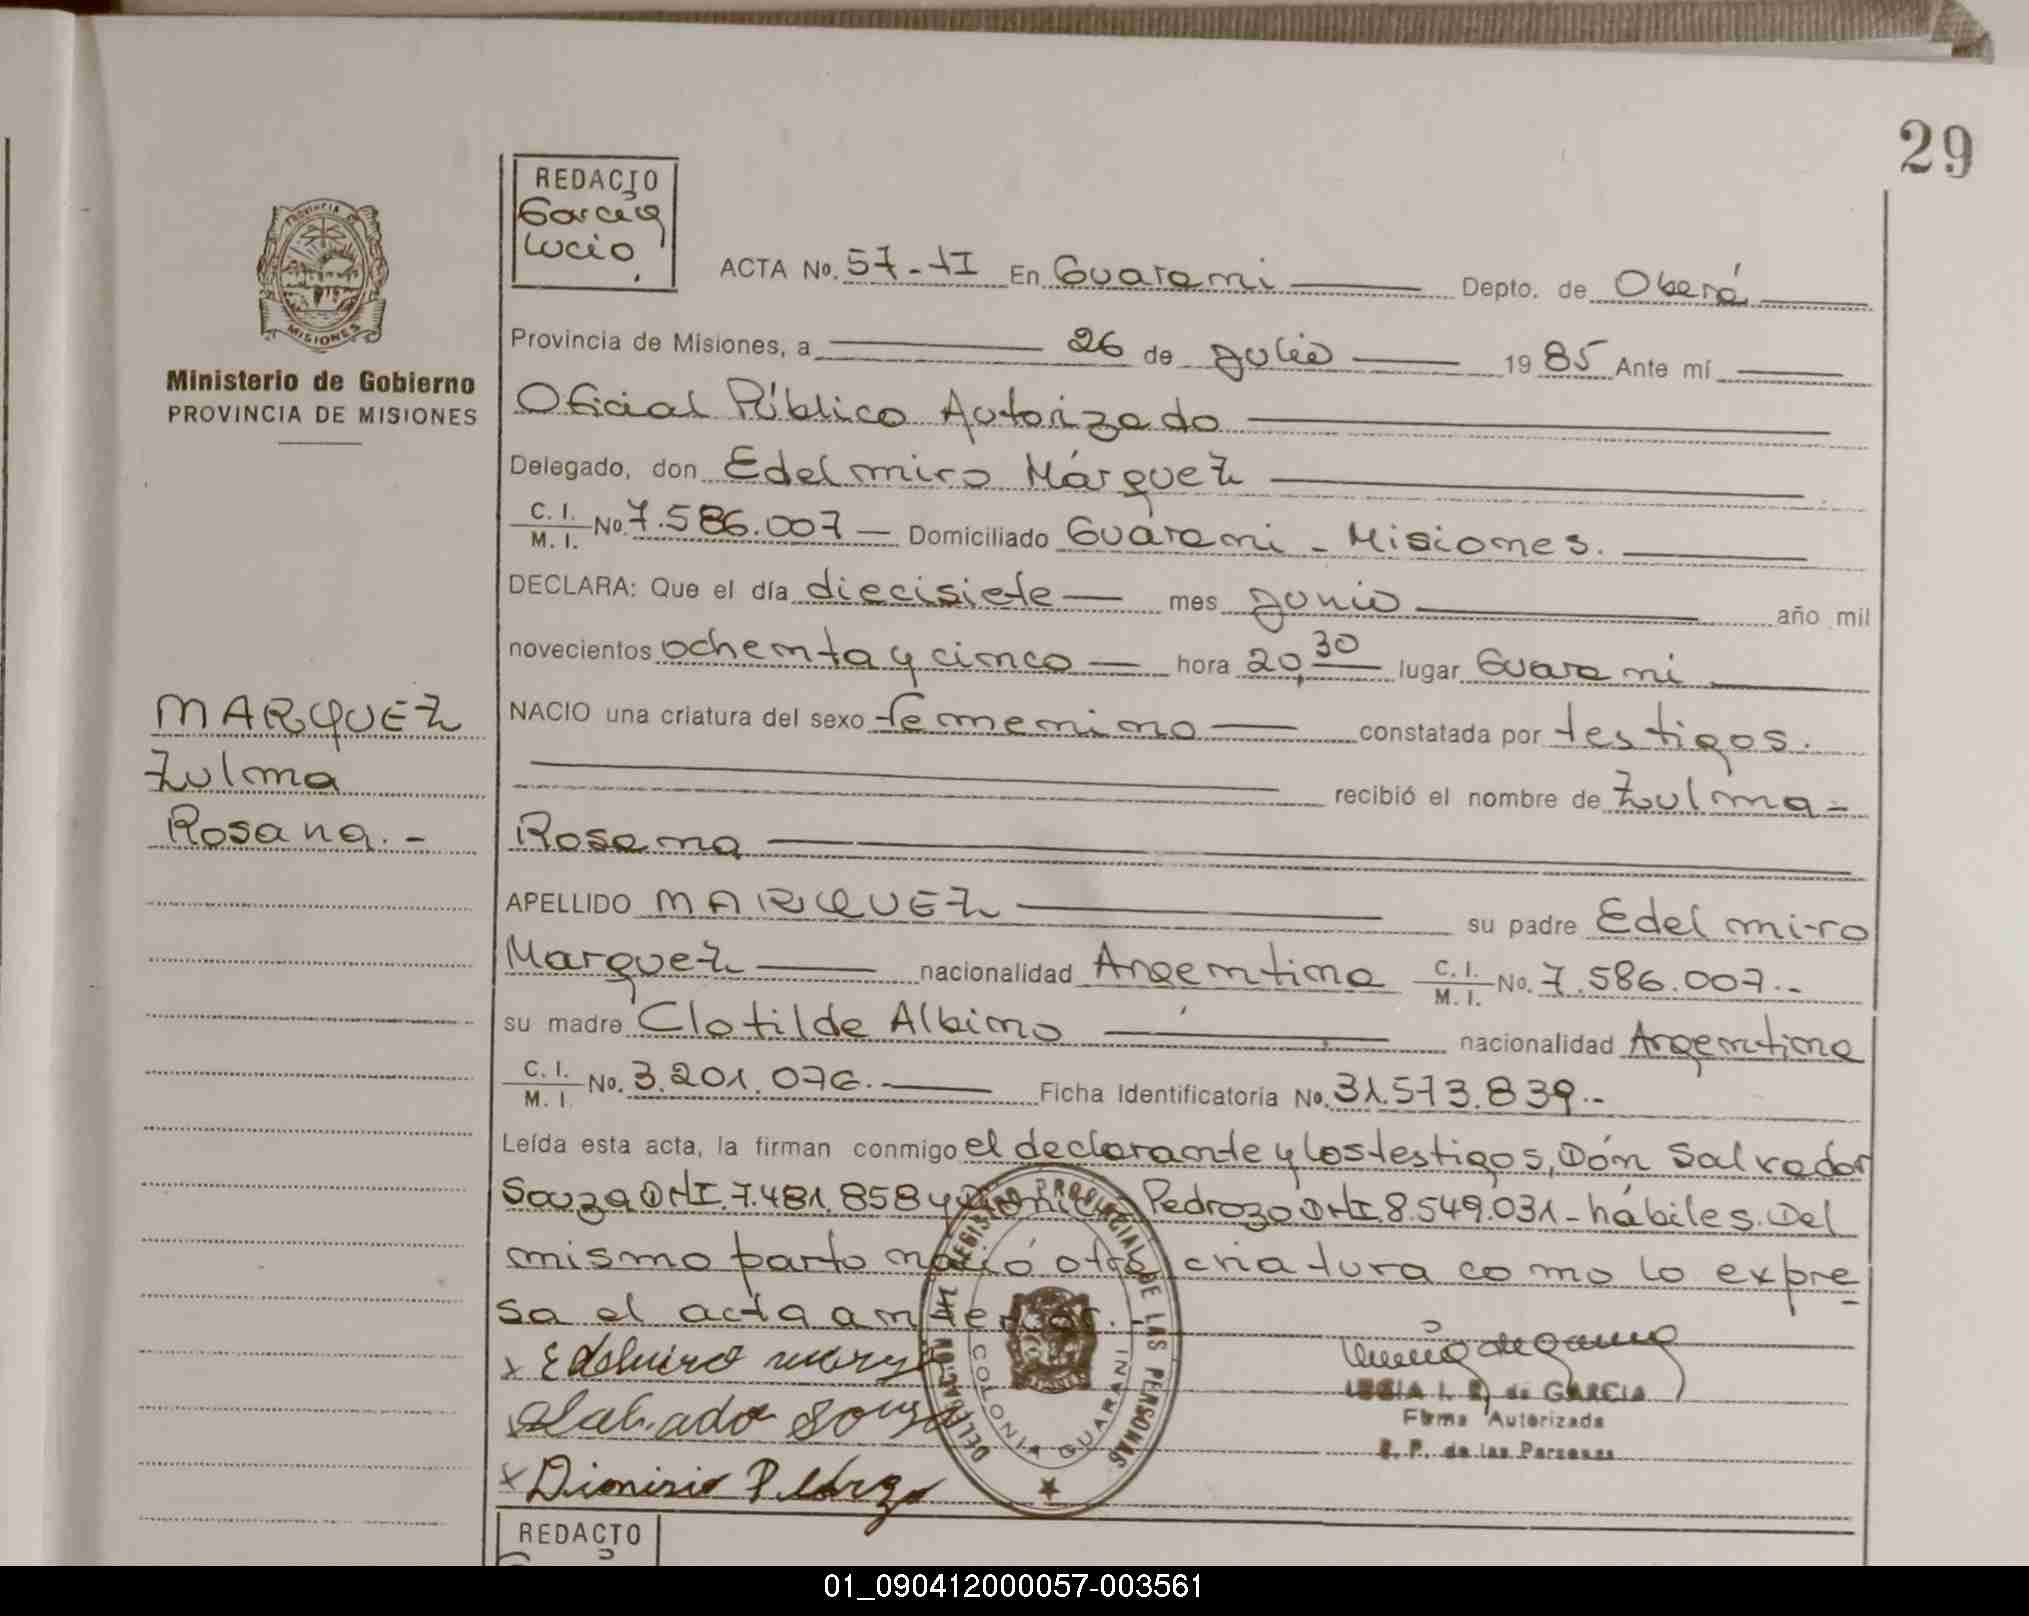 29
PROVINCIA DE
MISIONES
Ministerio de Gobierno
PROVINCIA DE MISIONES
REDACTO
Garcia
Lucio.
ACTA No. 57-TI En Guarani Depto. de Oberá
Provincia de Misiones, a 26 de Julio 19 85 Ante mí
Oficial Público Autorizado
Delegado, don Edelmiro Márquez
C. I. / M. I. No. 7.586.007 — Domiciliado Guarani - Misiones.
DECLARA: Que el día diecisiete — mes Junio año mil
novecientos ochenta y cinco — hora 20,30 lugar Guarani
MARQUEZ
Zulma
Rosana.-
NACIO una criatura del sexo femenino constatada por testigos.
recibió el nombre de Zulma-
Rosana
APELLIDO MARQUEZ su padre Edelmiro
Marquez nacionalidad Argentina C. I. / M. I. No. 7.586.007.-
su madre Clotilde Albino nacionalidad Argentina
C. I. / M. I. No. 3.201.076.- Ficha Identificatoria No. 31.573.839.-
Leída esta acta, la firman conmigo el declarante y los testigos, Dón Salvador
Souza DNI. 7.481.858 y Pedrozo DNI. 8.549.031 - hábiles. Del
mismo parto nació otra criatura como lo expre-
sa el acta anterior.
x Edelmiro
Souza
x Dionisio Pedrozo
DELEGACION DEL REGISTRO PROVINCIAL DE LAS PERSONAS
COLONIA GUARANI
de GARCIA
Firma Autorizada
R. P. de las Personas
REDACTO
01_090412000057-003561